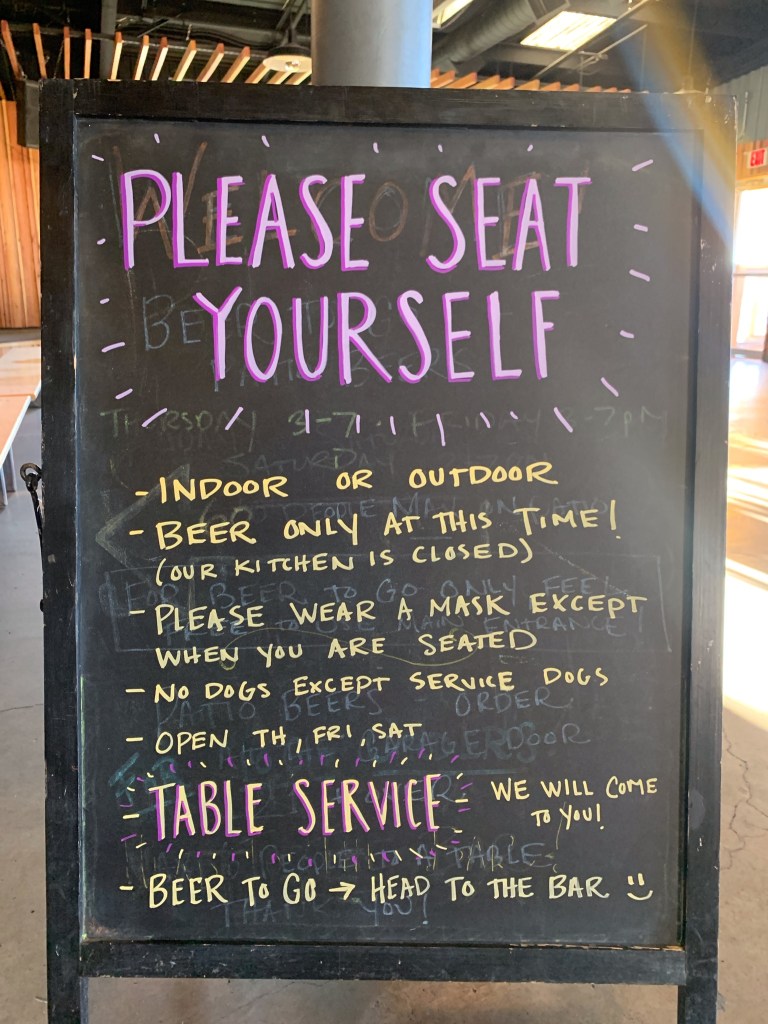 PLEASE SEAT
YOURSELF
- INDOOR OR OUTDOOR
- BEER ONLY AT THIS TIME!
(OUR KITCHEN IS CLOSED)
- PLEASE WEAR A MASK EXCEPT
WHEN YOU ARE SEATED
- NO DOGS EXCEPT SERVICE DOGS
- OPEN TH, FRI, SAT
- TABLE SERVICE - WE WILL COME
TO YOU!
- BEER TO GO → HEAD TO THE BAR